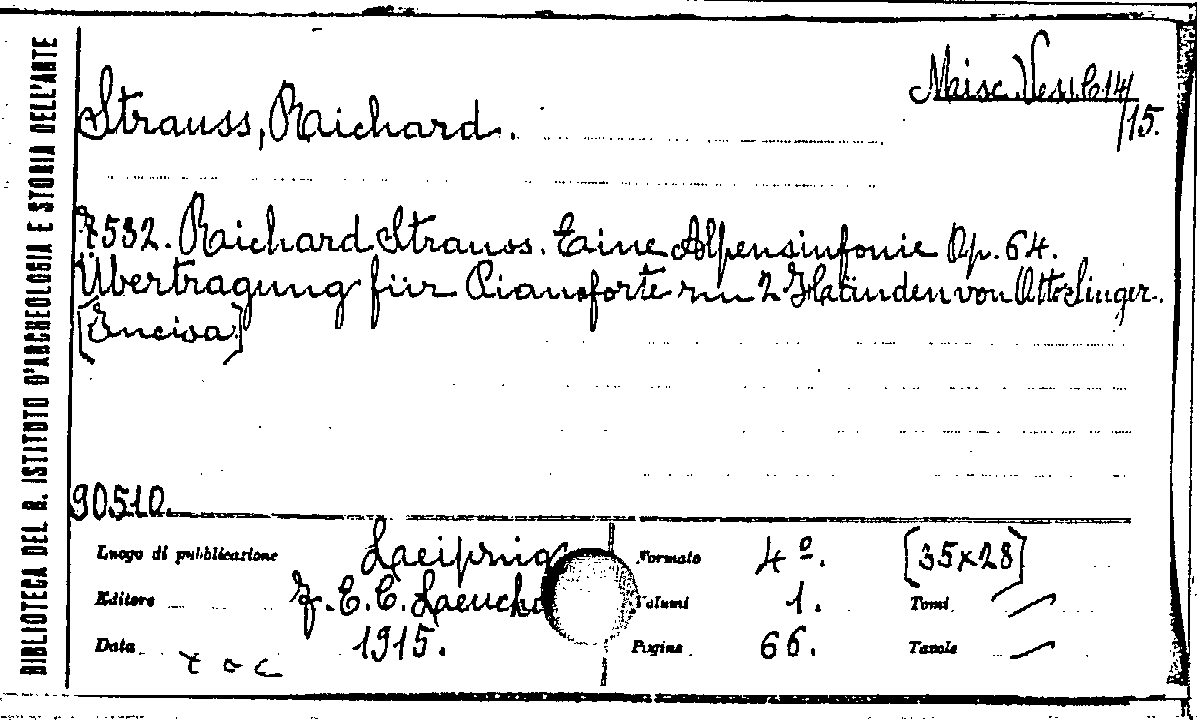 BIBLIOTECA DEL R. ISTITUTO D'ARCHEOLOGIA E STORIA DELL'ARTE
Misc. Vess. C 14/
/15.
Strauss, Richard.
7532. Richard Strauss. Eine Alpensinfonie Op. 64.
Übertragung für Pianoforte zu 2 Händen von Otto Singer.
90510.
Luogo di pubblicazione Leipzig Formato 4º. [35x28]
Editore F. E. C. Leucka Volumi 1. Tomi
Data 1915. Pagine 66. Tavole